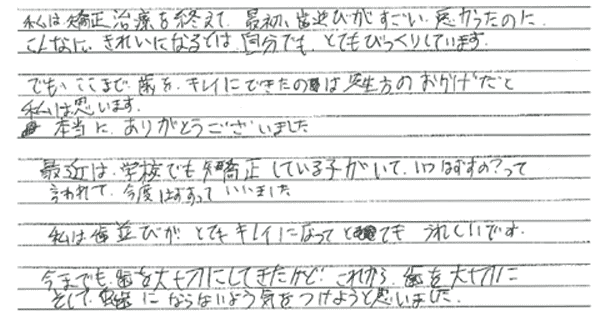 私は矯正治療を終えて、最初、歯並びがすごい悪かったのに
こんなに、きれいになるとは、自分でも、とてもびっくりしています。
でも、ここまで歯を、キレイにできたのは先生方のおかげだと
私は思います。
本当に、ありがとうございました
最近は、学校でも矯正している子がいて、いつはずすの?って
言われて、今度はずすって いいました
私は歯並びが とても キレイになって とても うれしいです。
今までも、歯を大切にしてきたけど、これから、歯を大切に
そして、虫歯に ならないよう気をつけようと思いました。